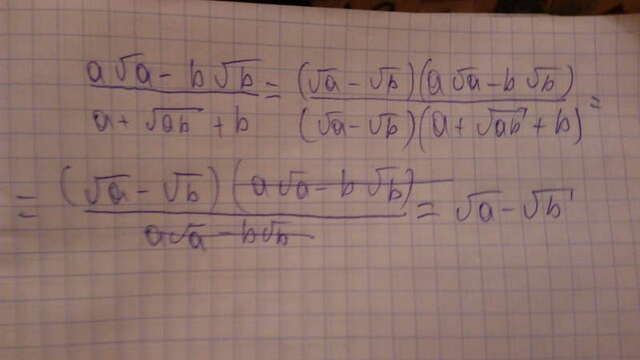 (a√a − b√b)/(a + √ab + b) = ((√a − √b)(a√a − b√b))/((√a − √b)(a + √ab + b)) =
= ((√a − √b)(a√a − b√b))/(a√a − b√b) = √a − √b